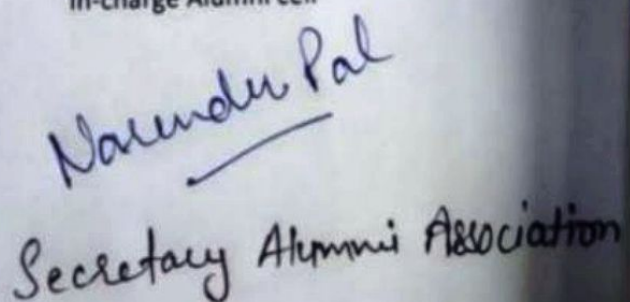 In-charge Alumni Cell
Narender Pal
Secretary Alumni Association